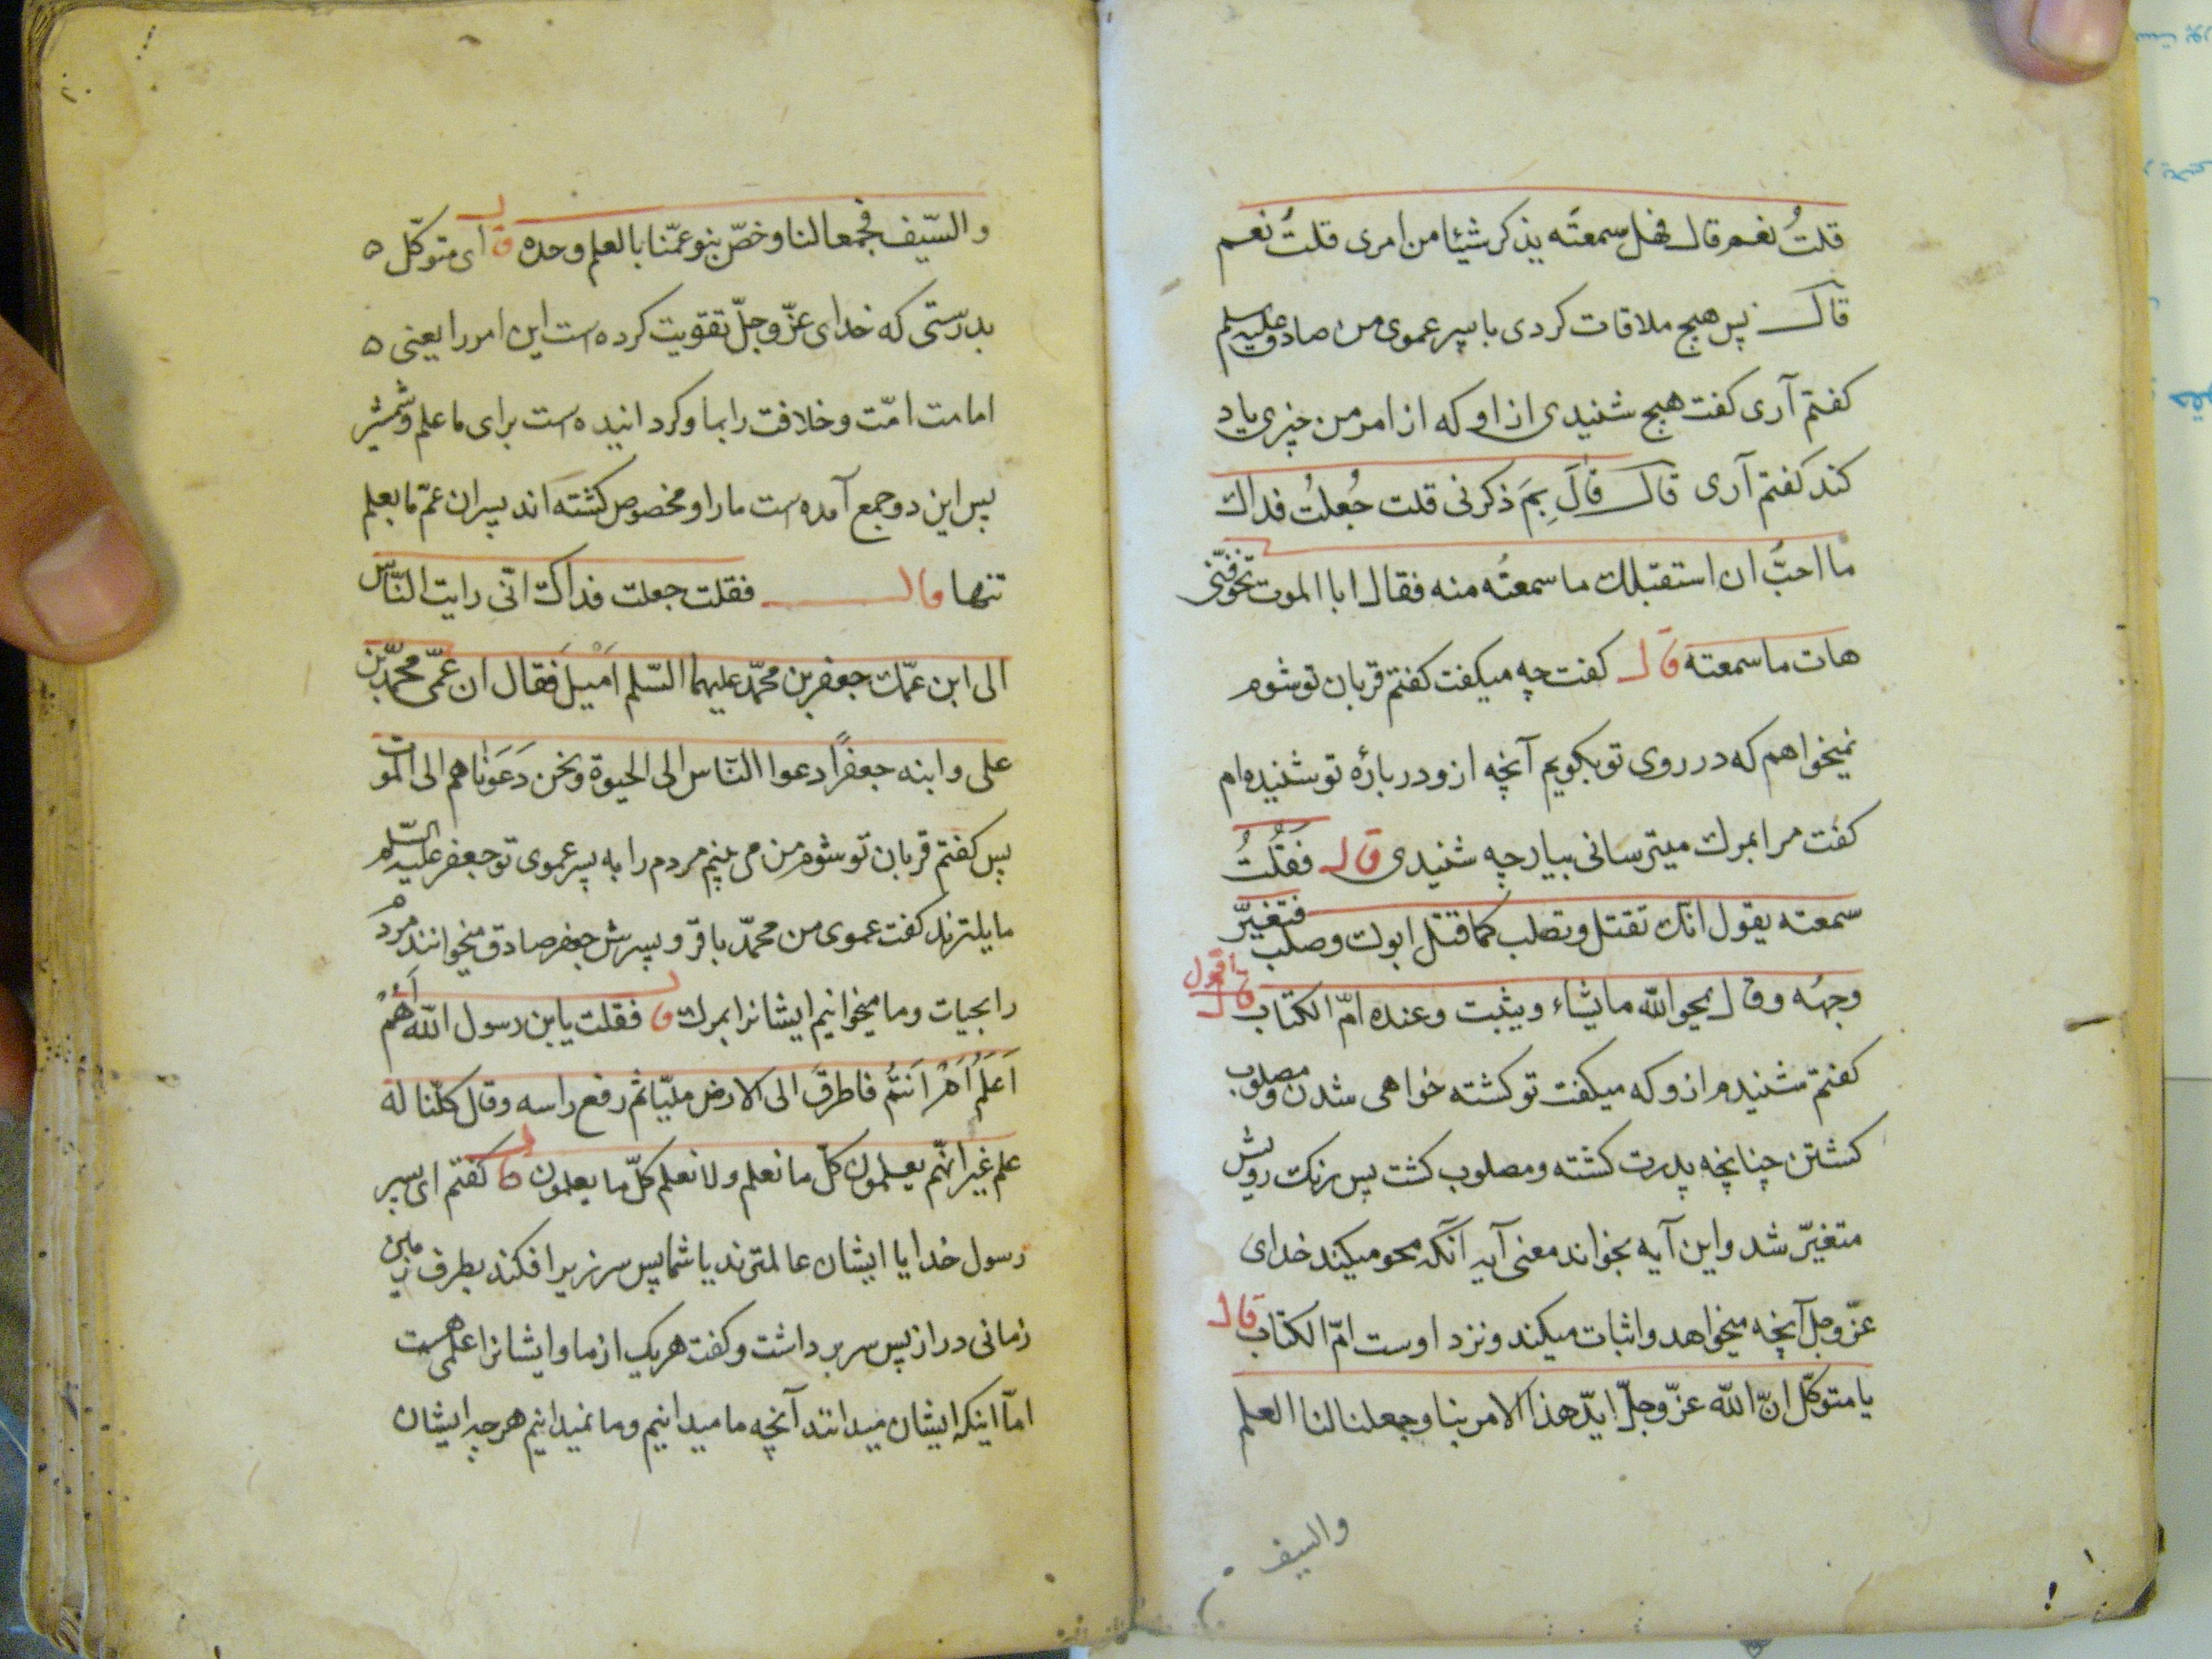 قلتُ نعم قال فهل سمعتَه یذکر شیئا من امری قلتُ نعم
قال پس هیچ ملاقات کردی با پسر عموی من صادق علیه السلم
کفتم آری کفت هیچ شنیدی از او که از امر من چیزی یاد
کند کفتم آری قال قالَ بِمَ ذکرنی قلت جُعلتُ فداك
ما احبُّ ان استقبلك ما سمعتُه منه فقال ابا الموت تخوّفنی
هات ما سمعته قال کفت چه میکفت کفتم قربان تو شوم
نمیخواهم که در روی تو بکویم آنچه ازو دربارهٔ تو شنیده ام
کفت مرا بمرك میترسانی بیار چه شنیدی قال فَقُلتُ
سمعته یقول انّك تقتل وتصلب کما قتل ابوك وصلب فتغیّر
وجهُه وقال یمحو الله ما یشاء ویثبت وعنده امّ الکتاب اقول
کفتم شنیدم ازو که میکفت تو کشته خواهی شدن ومصلوب
کشتن چنانچه پدرت کشته ومصلوب کشت پس رنك رویش
متغیّر شد واین آیه بخواند معنی آیه آنکه محو میکند خدای
عزّ وجل آنچه میخواهد واثبات میکند ونزد اوست امّ الکتاب قال
یا متوکّل انّ الله عزّ وجلّ ایّد هذا الامر بنا وجعل لنا العلم
والسیف
والسّیف فجمعا لنا وخصّ بنو عمّنا بالعلم وحده قال ای متوکّل
بدرستی که خدای عزّ وجلّ تقویت کرده است این امر را یعنی
امامت امّت وخلافت را بما وکردانیده است برای ما علم وشمشیر
پس این دو جمع آمده است ما را ومخصوص کشته اند پسران عمّ ما بعلم
تنها قال فقلت جعلت فداك انّی رایت النّاس
الی ابن عمّك جعفر بن محمّد علیهما السّلم اَمْیلَ فقال ان عمّی محمّد بن
علی وابنه جعفراً دعوا النّاس الی الحیوة ونحن دَعَوناهم الی الموت
پس کفتم قربان تو شوم من می بینم مردم را به پسر عموی تو جعفر علیه السّلم
مایلترند کفت عموی من محمّد باقر وپسرش جعفر صادق میخوانند مردم
را بحیات وما میخوانیم ایشانرا بمرك قال فقلت یابن رسول الله أَهُمْ
اَعلَمُ اَمْ اَنتُم فاطرقَ الی الارض ملیّا ثم رفع راسه وقال کلّنا له
علم غیر انّهم یعلمون کلّ ما نعلم ولا نعلم کلّ ما یعلمون قال کفتم ای پسر
رسول خدا یا ایشان عالمترند یا شما پس سر زیر افکند بطرف زمین
زمانی دراز پس سر برداشت وکفت هریك از ما وایشانرا علمی هست
امّا اینکه ایشان میدانند آنچه ما میدانیم وما نمیدانیم هرچه ایشان